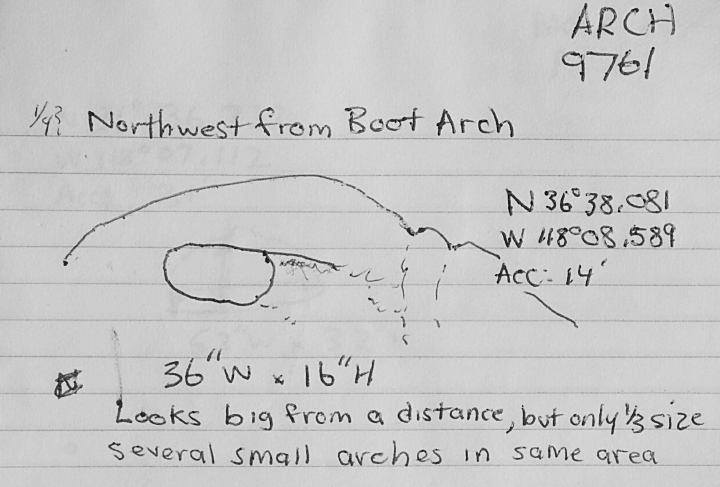 ARCH
9761
1/4? Northwest from Boot Arch
N 36°38.081
W 118°08.589
Acc: 14'
36"W x 16"H
Looks big from a distance, but only 1/3 size
several small arches in same area